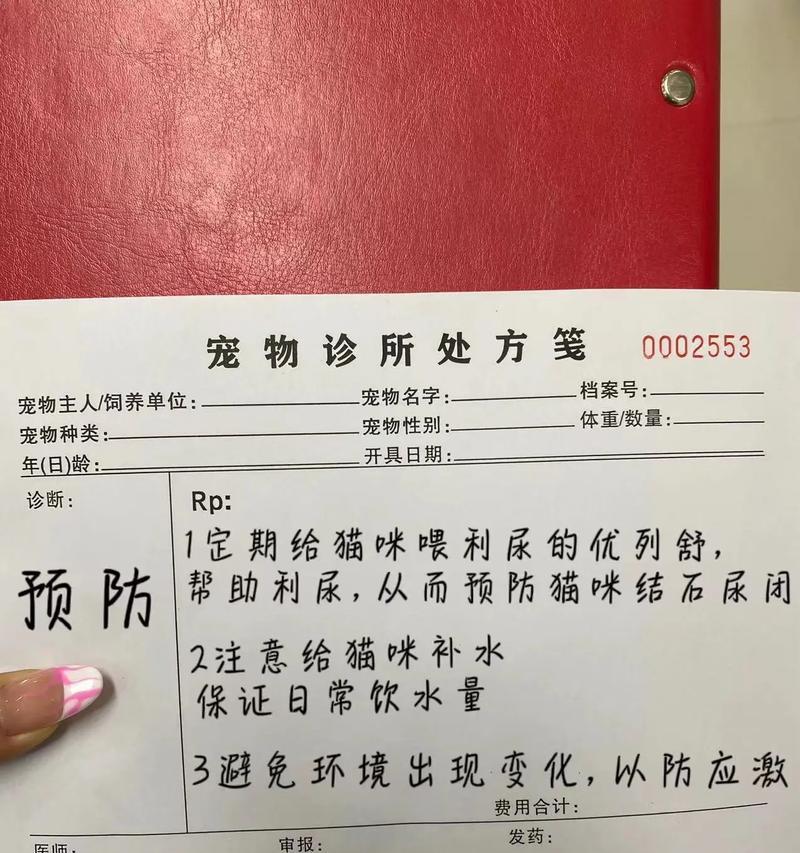 宠物诊所处方笺 0002553
宠物主人/饲养单位: 宠物名字: 档案号:
宠物种类: 宠物性别: 体重/数量:
年(日)龄: 开具日期:
诊断: Rp:
1定期给猫咪喂利尿的优列舒,
预防 帮助利尿,从而预防猫咪结石尿闭
2注意给猫咪补水
保证日常饮水量
3避免环境出现变化,以防应激
费用合计:
医师: 审报: 发药: